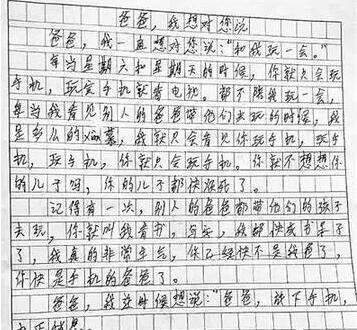 爸爸,我想对您说
爸爸,我一直想对您说:“和我玩一会。”
每当星期六和星期天的时候,你就只会玩
手机,玩完手机就看电视。都不陪我玩一会,
每当我看见别人的爸爸带他们去玩的时候,我
是多么的xiàn慕,我就只会看见你玩手机,玩手
机,玩手机,你就只会玩手机。你就不想想你
的儿子吗,你的儿子都快没了。
记得有一次,别人的爸爸都带他们的孩子
去玩,你就叫我看书,写字,我都快成书呆子
了,我真的非常生气,你已经快不是我爸了,
你快是手机的爸爸了。
爸爸,我这时候想说:“爸爸,放下手机,